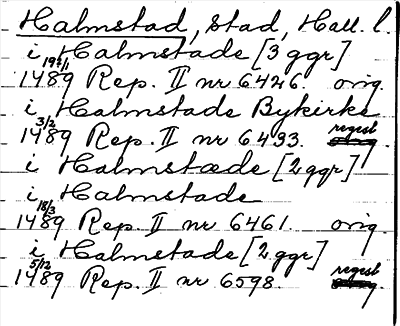 Halmstad, stad, Hall. l.
i Halmstade [3 ggr]
19/1
1489 Rep. II nr 6426. orig.
i Halmstade Bykirke
3/2
1489 Rep. II nr 6433. regest
i Halmstæde [2 ggr]
i Halmstade
18/3
1489 Rep. II nr 6461. orig.
i Halmstade [2 ggr]
5/12
1489 Rep. II nr 6598. regest